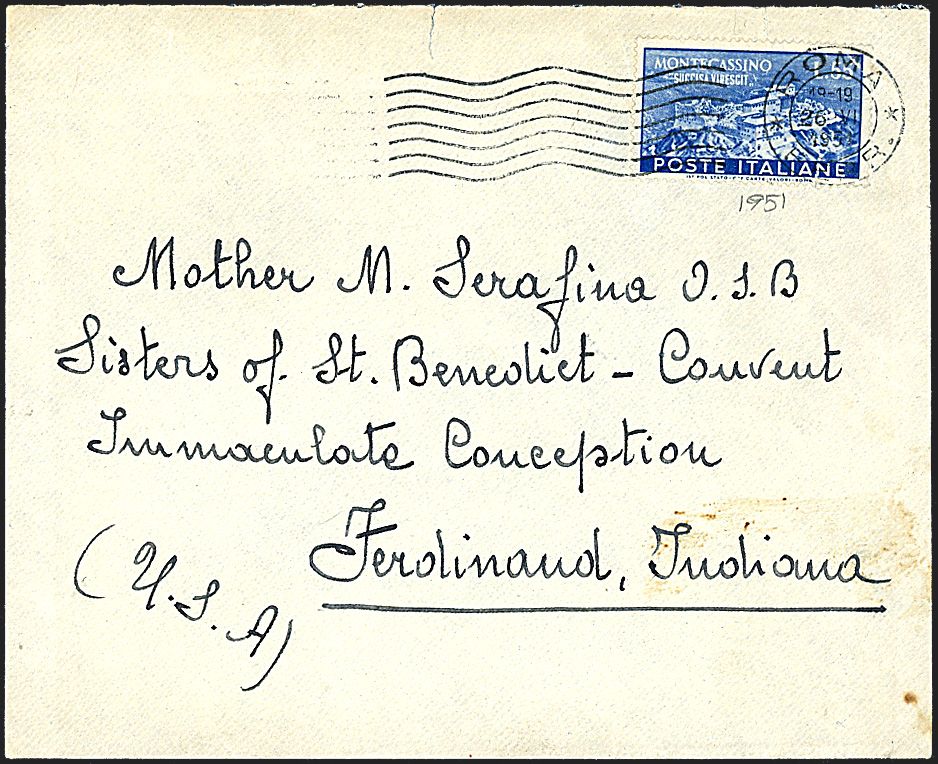 MONTECASSINO
SUCCISA VIRESCIT
POSTE ITALIANE
ROMA
18-19
26 VI
1951
1951
Mother M. Serafina O.S.B
Sisters of St. Benedict - Convent
Immaculate Conception
Ferdinand, Indiana
(U.S.A)